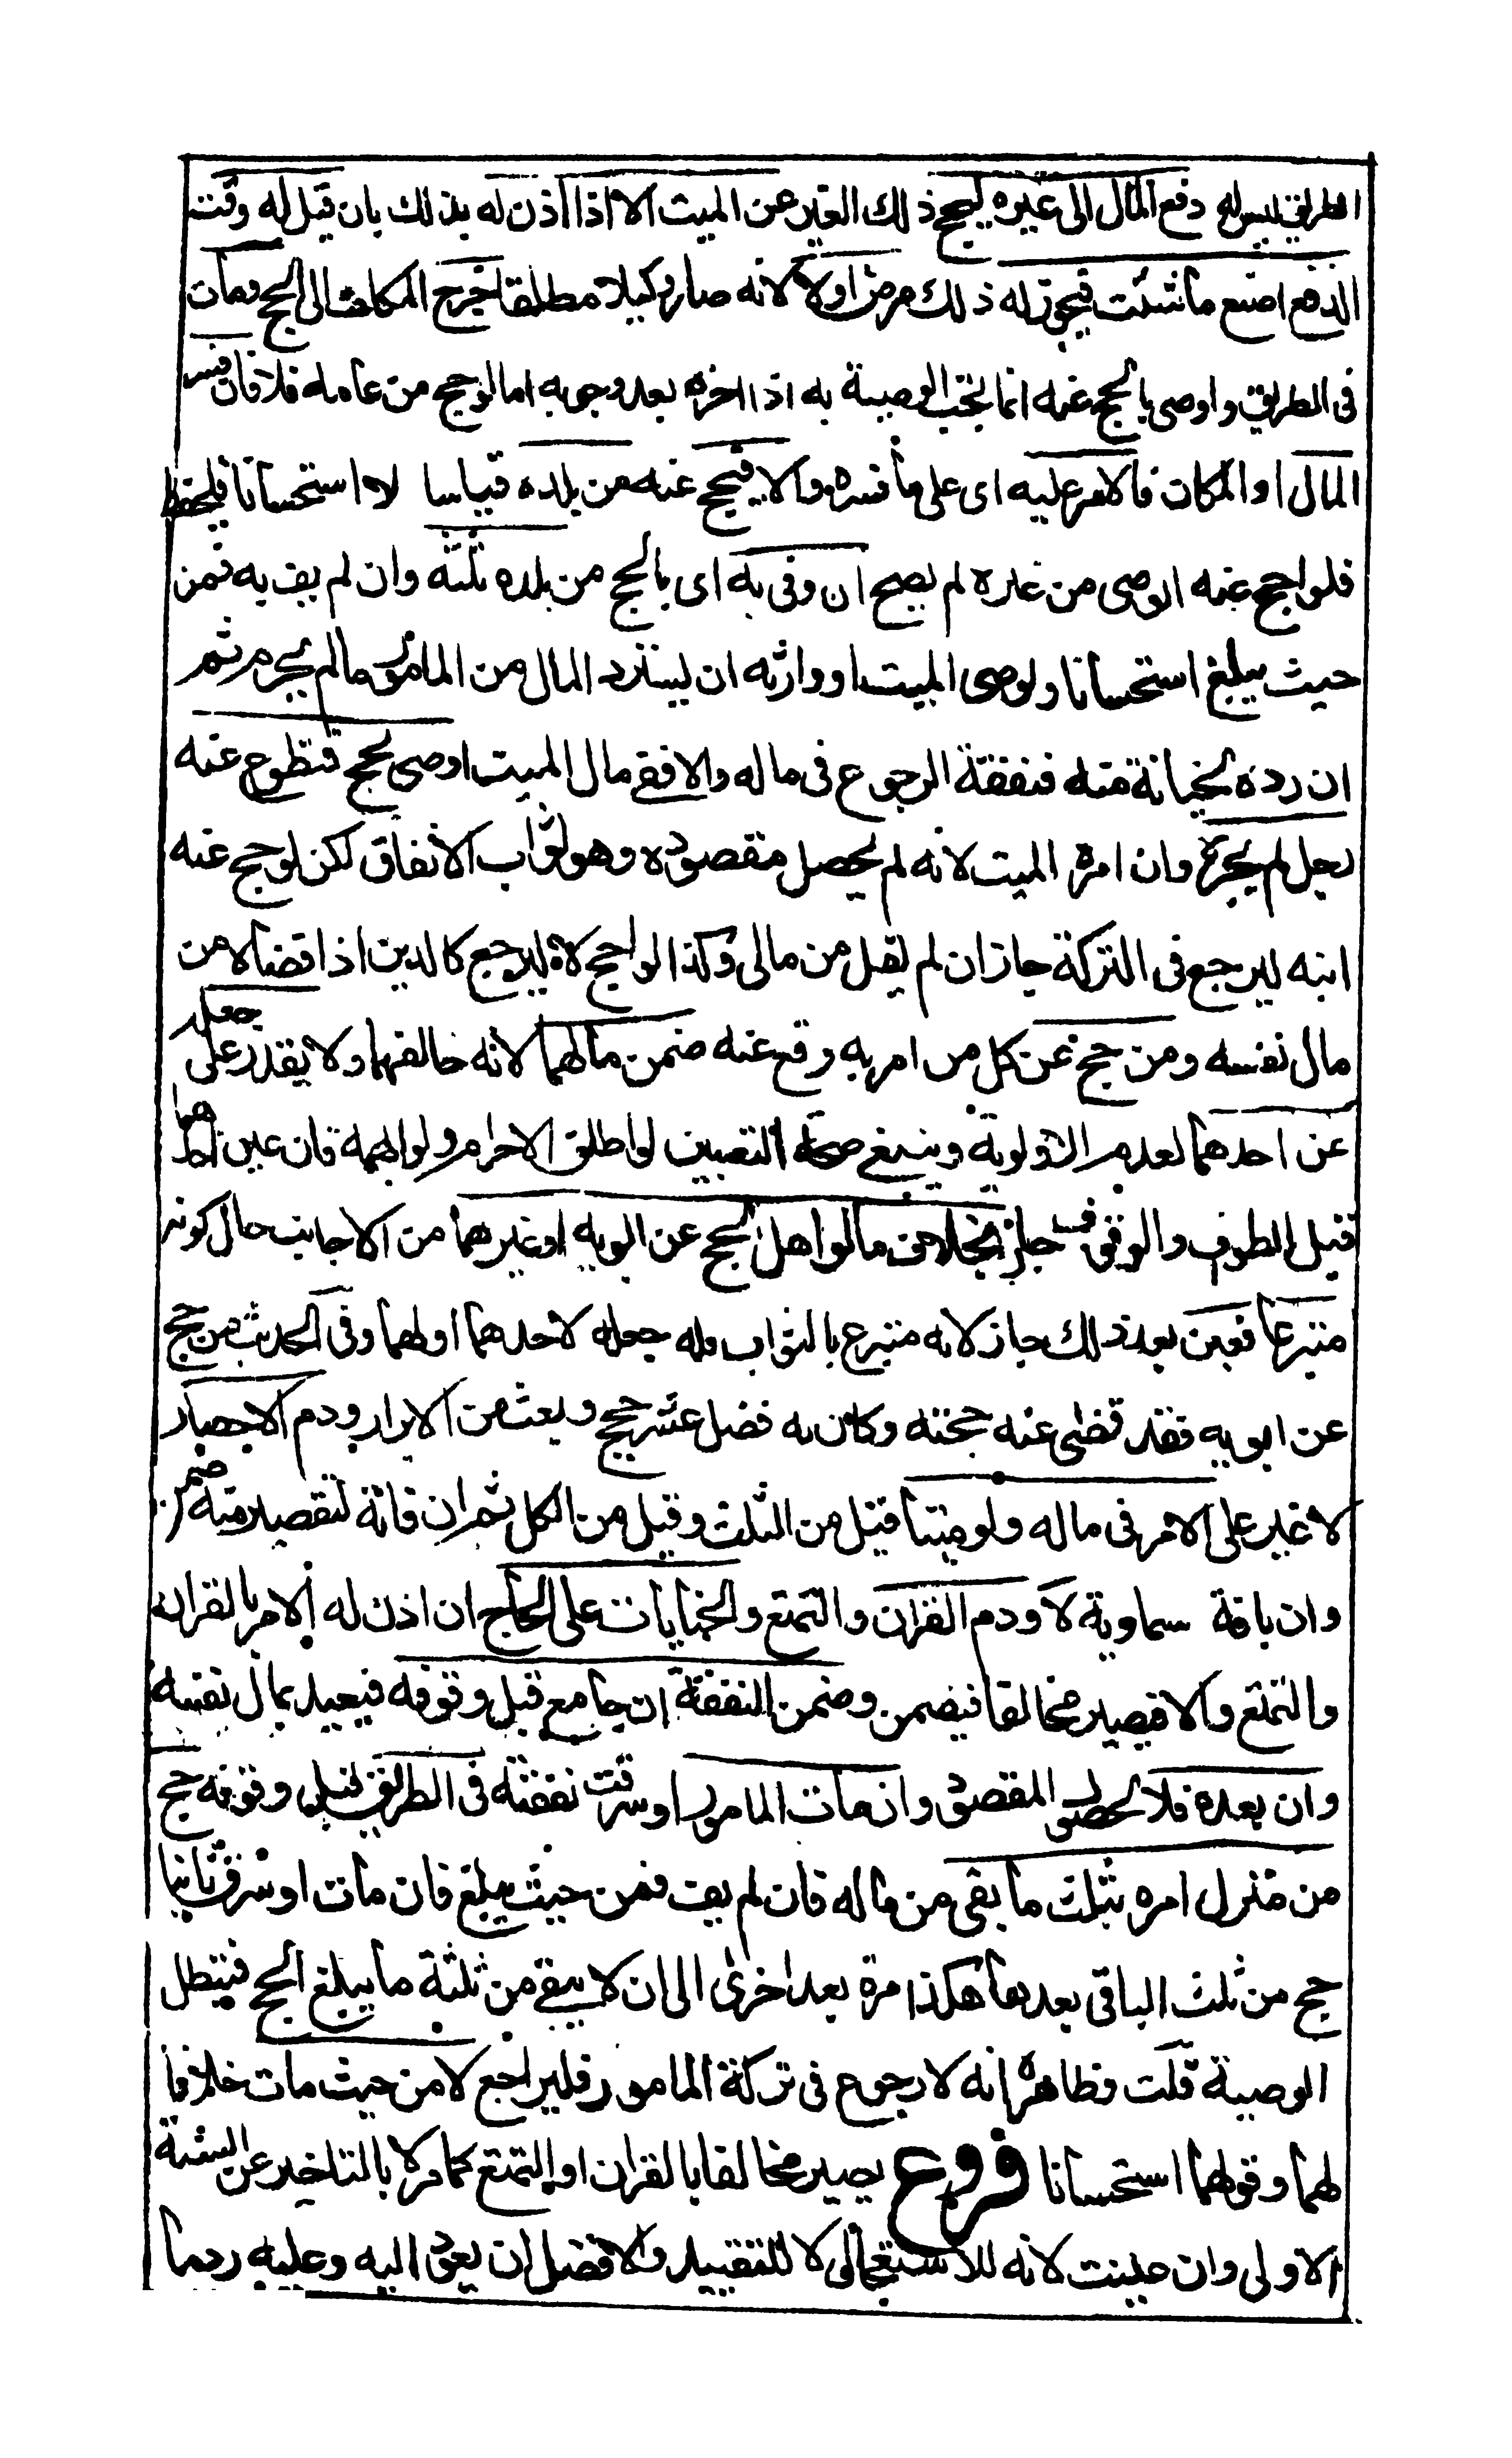 الطريق ليس له دفع المال الى غيره ليحج ذلك الغير عن الميت الا اذا اذن له بذلك بان قيل له وقت
الدفع اصنع ما شئت فيجوز له ذلك مرض اولا لانه صار وكيلا مطلقا خرج المكلف الى الحج ومات
فى الطريق واوصى بالحج عنه انما تجب الوصية به اذا اخره بعد وجوبه اما لو حج من عامه فلا فان فسر
المال او المكان فالامر عليه اى على ما فسره والا فيحج عنه من بلده قياسا لا استحسانا فليحفظ
فلو احج عنه الوصى من غيره لم يصح ان وفى به اى بالحج من بلده ثلثه وان لم يف به فمن
حيث يبلغ استحسانا ولوصى الميت او وارثه ان يسترد المال من المامور ما لم يحرم ثم
ان رده لخيانة منه فنفقة الرجوع فى ماله والا فقى مال الميت اوصى بحج فتطوع عنه
رجل لم يجزه وان امره الميت لانه لم يحصل مقصوده وهو ثواب الانفاق لكن لو حج عنه
ابنه ليرجع فى التركة جاز ان لم يقل من مالى وكذا لو احج لا ليرجع كالدين اذا قضاه من
مال نفسه ومن حج عن كل من امريه وقع عنه ضمن مالهما لانه خالفهما ولا يقدر على جعله
عن احدهما لعدم الاولوية وينبغى صحة التعيين لو اطلق الاحرام ولو ابهمه فان عين احدهما
قبل الطواف والوقوف جاز بخلاف ما لو اهل بحج عن ابويه او غيرهما من الاجانب حال كونه
متبرعا فعين بعد ذلك جاز لانه متبرع بالثواب فله جعله لاحدهما او لهما وفى الحديث من حج
عن ابويه فقد قضى عنه حجته وكان له فضل عشر حجج وبعث من الابرار ودم الاحصار
لا غير على الامر فى ماله ولو ميتا قيل من الثلث وقيل من الكل ثم ان فاته لتقصير منه ضمن
وان بافة سماوية لا ودم القران والتمتع والجنايات على الحاج ان اذن له الامر بالقران
والتمتع والا فيصير مخالفا فيضمن وضمن النفقة ان جامع قبل وقوفه فيعيد بمال نفسه
وان بعده فلا لحصول المقصود وان مات المامور او سرقت نفقته فى الطريق قبل وقوفه حج
من منزل امره بثلث ما بقى من ماله فان لم يف فمن حيث يبلغ فان مات او سرق ثانيا
حج من ثلث الباقى بعدها هكذا مرة بعد اخرى الى ان لا يبقى من ثلثه ما يبلغ الحج فتبطل
الوصية قلت وظاهره انه لا رجوع فى تركة المامور فليراجع لا من حيث مات خلافا
لهما وقولهما استحسانا فروع يصير مخالفا بالقران او التمتع كما مر لا بالتاخير عن السنة
الاولى وان عينت لانه للاستعجال لا للتقييد والافضل ان يعود اليه وعليه رد ما